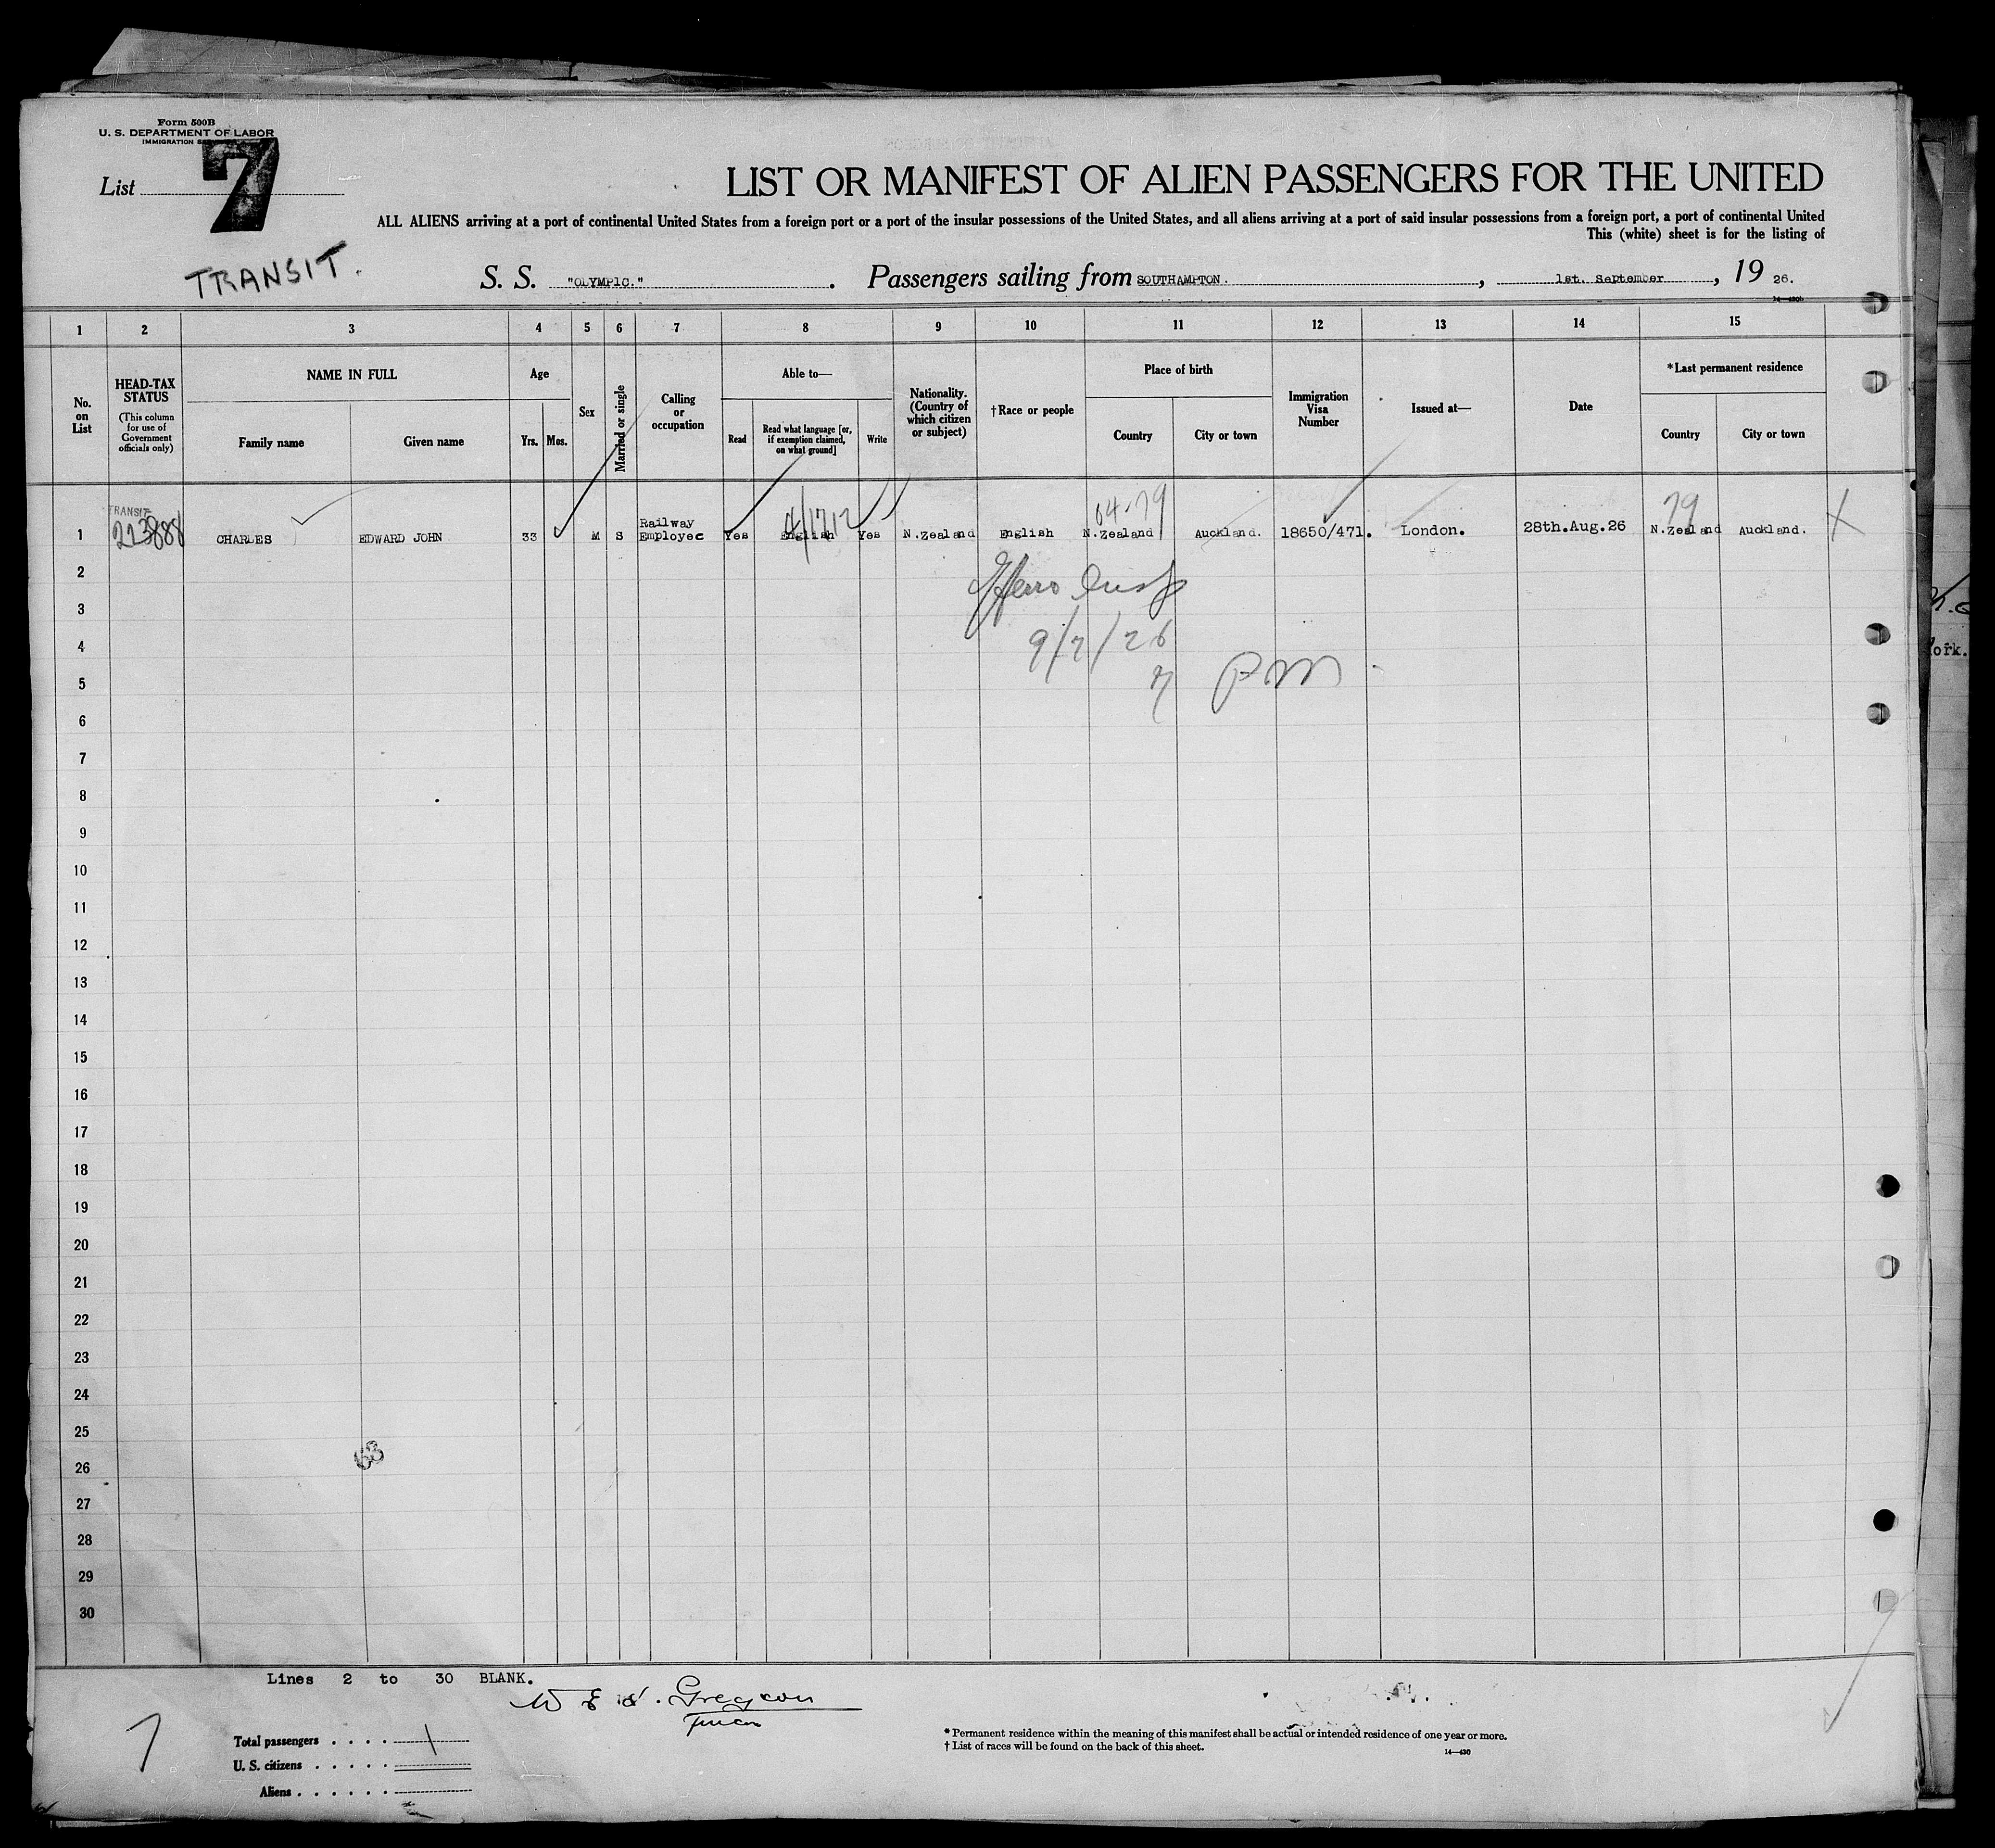 Form 500B
U. S. DEPARTMENT OF LABOR
IMMIGRATION
List 7
LIST OR MANIFEST OF ALIEN PASSENGERS FOR THE UNITED
ALL ALIENS arriving at a port of continental United States from a foreign port or a port of the insular possessions of the United States, and all aliens arriving at a port of said insular possessions from a foreign port, a port of continental United
This (white) sheet is for the listing of
TRANSIT.
S. S. "OLYMPIC." . Passengers sailing from SOUTHAMPTON. , 1st. September , 19 26.
1 2 3 4 5 6 7 8 9 10 11 12 13 14 15
No. on List
HEAD-TAX STATUS (This column for use of Government officials only)
NAME IN FULL
Family name Given name
Age
Yrs. Mos.
Sex
Married or single
Calling or occupation
Able to—
Read
Read what language [or, if exemption claimed, on what ground]
Write
Nationality. (Country of which citizen or subject)
†Race or people
Place of birth
Country City or town
Immigration Visa Number
Issued at—
Date
*Last permanent residence
Country City or town
TRANSIT
04-79
79
1 CHARLES EDWARD JOHN 33 M S Railway Employee Yes English Yes N.Zealand English N.Zealand Auckland. 18650/471. London. 28th.Aug.26 N.Zealand Auckland.
2
3
9/7/26
4
5
7 PM
6
7
8
9
10
11
12
13
14
15
16
17
18
19
20
21
22
23
24
25
63
26
27
28
29
30
Lines 2 to 30 BLANK.
7
Total passengers . . . . 1
U. S. citizens . . . . .
Aliens . . . . . .
* Permanent residence within the meaning of this manifest shall be actual or intended residence of one year or more.
† List of races will be found on the back of this sheet.
14—430
ork.